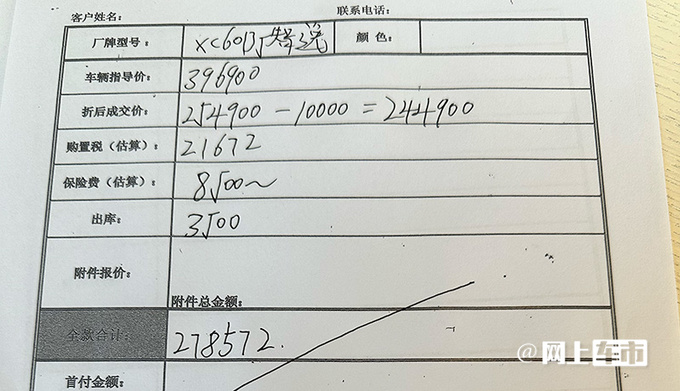 客户姓名: 联系电话:
厂牌型号: XC60B5智逸 颜色:
车辆指导价: 396900
折后成交价: 254900-10000=244900
购置税(估算): 21672
保险费(估算): 8500~
出库: 3500
附件报价:
附件总金额:
全款合计: 278572.
首付金额:
@网上车市